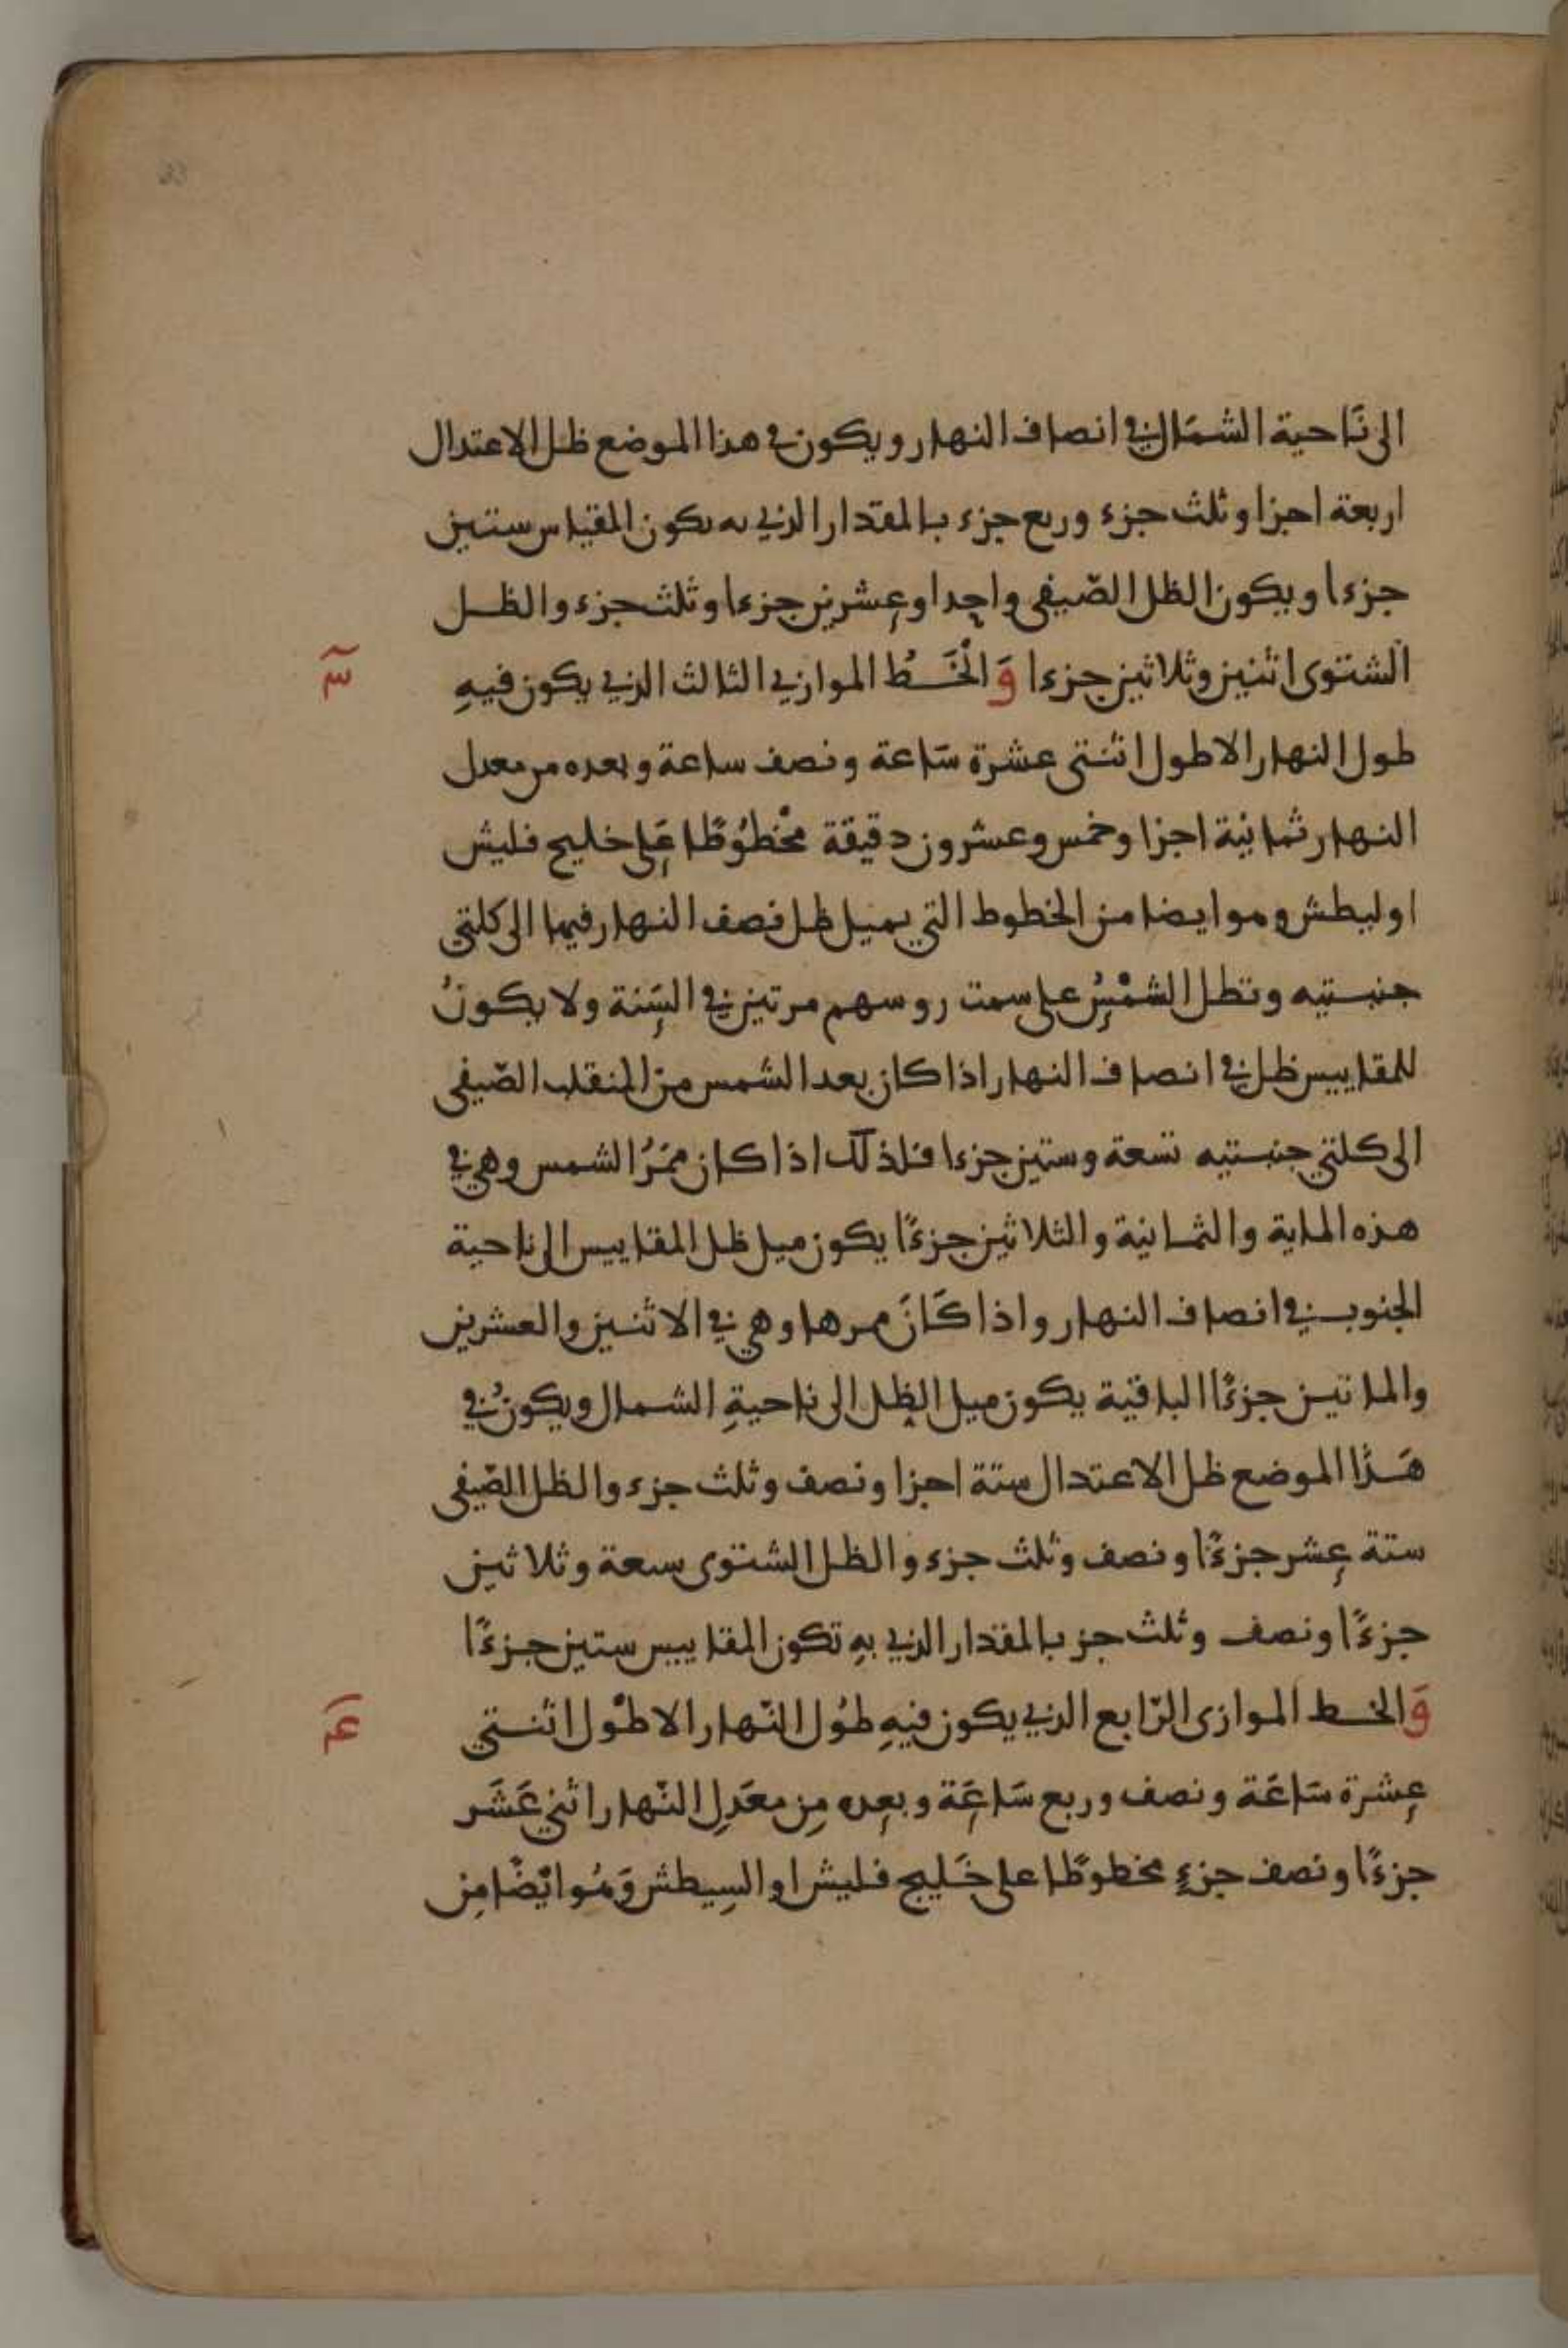 الى نَاحية الشمَال في انصاف النهار ويكون في هذا الموضع ظل الاعتدال
اربعة اجزا وثلث جزء وربع جزء بالمقدار الذي به يكون المقياس ستين
جزءا ويكون الظل الصّيفي واحدا وعشرين جزءا وثلث جزء والظل
الشتوى اثنين وثلاثين جزءا وَالْخَطُ الموازي الثالث الذي يكون فيهِ
٣
طول النهار الاطول اثنتى عشرة سَاعة ونصف ساعة وبعده من معدل
النهار ثمانية اجزا وخمس وعشرون دقيقة مخْطُوطًا عَلى خليج فليش
اوليطش وهو ايضا من الخطوط التي يميل ظل نصف النهار فيها الى كلتي
جنبتيه وتظل الشمْسُ على سمت روسهم مرتين في السَنة ولا يكونُ
للمقاييس ظل في انصاف النهار اذا كان بعد الشمس من المنقلب الصّيفي
الى كلتي جنبتيه تسعة وستين جزءا فلذلك اذا كان ممَرُ الشمس وهي في
هذه الماية والثمانية والثلاثين جزءًا يكون ميل ظل المقاييس الى ناحية
الجنوب في انصاف النهار واذا كَانَ ممرها وهي في الاثنين والعشرين
والماتين جزءًا الباقية يكون ميل الظل الى ناحيةِ الشمال ويكونُ في
هَذا الموضع ظل الاعتدال ستة اجزا ونصف وثلث جزء والظل الصّيفي
ستة عشر جزءًا ونصف وثلث جزء والظل الشتوى سبعة وثلاثين
جزءًا ونصف وثلث جز بالمقدار الذي بهِ تكون المقاييس ستين جزءًا
وَالخط الموازى الرّابع الذي يكون فيهِ طُول النّهار الاطْول اثنتي
٤
عشرة سَاعَة ونصف وربع سَاعَة وبعده مِن معَدلِ النّهار اثني عَشَر
جزءًا ونصف جزءٍ مخطوطًا على خَليج فليش اوالسِيطش وَهُو ايْضًا مِن